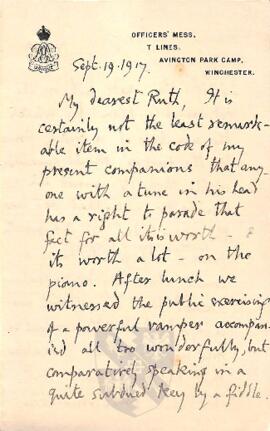 OFFICERS' MESS.
T LINES.
AVINGTON PARK CAMP,
WINCHESTER.
Sept. 19. 1917.
My dearest Ruth, It is
certainly not the least remark-
able item in the code of my
present companions that any-
one with a tune in his head
has a right to parade that
fact for all it is worth - &
its worth a lot - on the
piano. After lunch we
witnessed the public exercising
of a powerful ramper accompan-
ied all too wonderfully, but
comparatively speaking in a
quite subdued key by a fiddle.